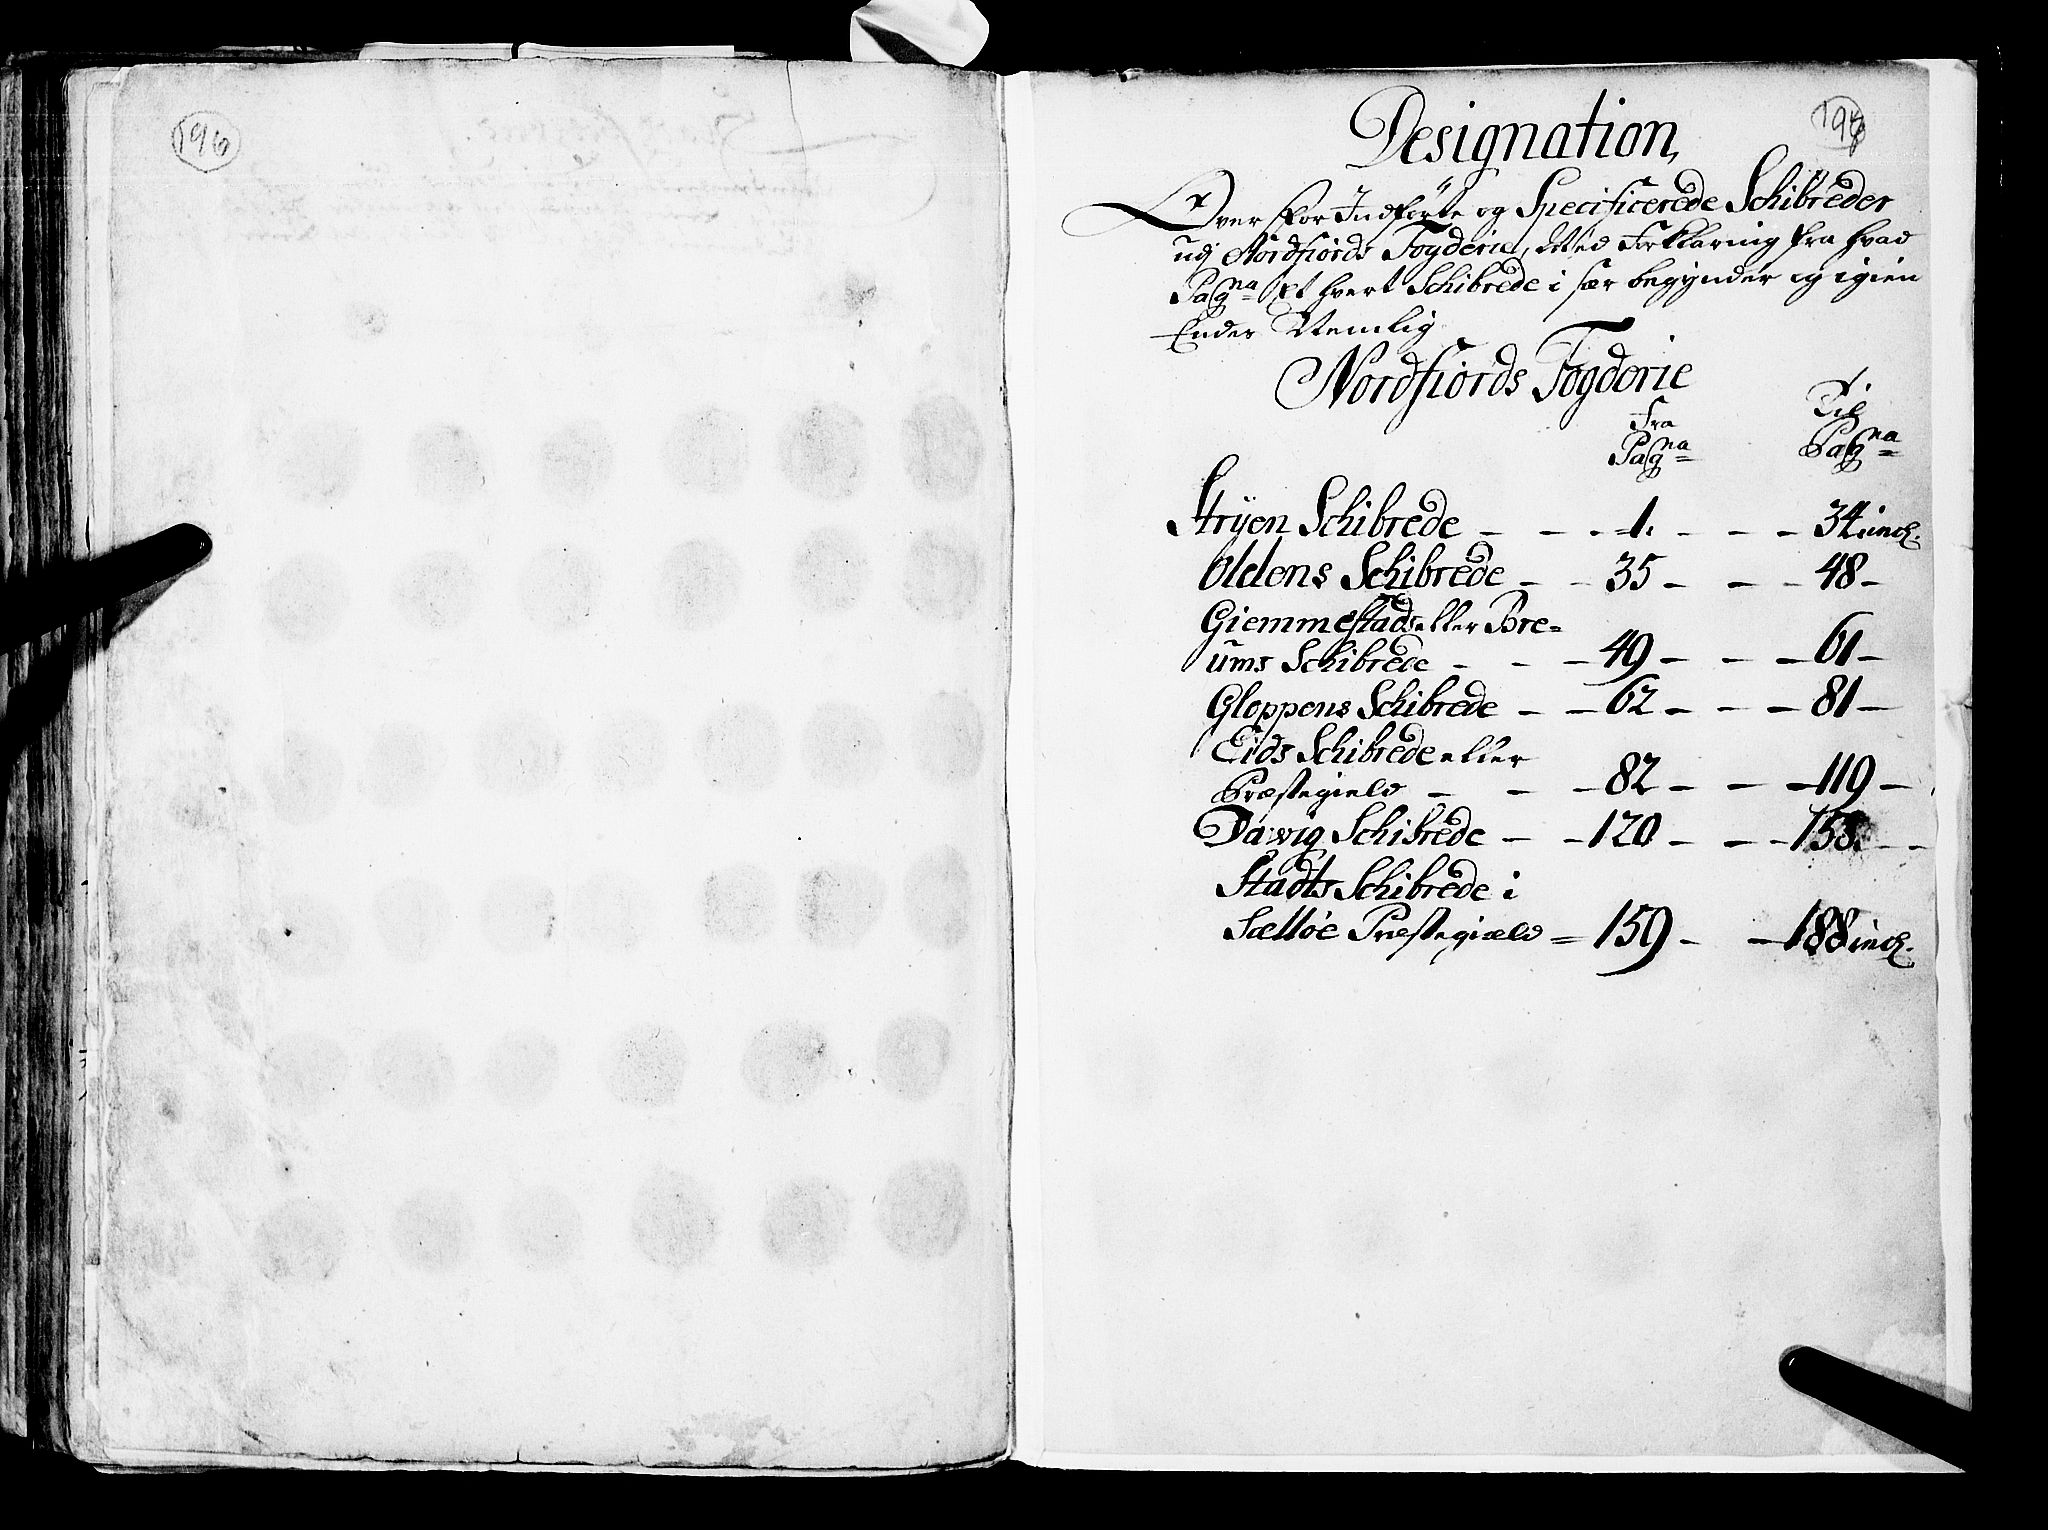 196
Designation,
Over For Indførte og Specificerede Schibreder
udj Nordfiords Fogderie, Med Forklaring fra hvad
Pagna Et hvert Schibrede i sær begynder og igien
Ender Nemlig
Nordfiords Fogderie
Fra Til
Pagna Pagna
Stryen Schibrede - - - 1. - - - 34 incl.
Oldens Schibrede - - 35 - - - 48 -
Giemmestads eller Bre=
ums Schibrede - - - 49 - - - 61 -
Gloppens Schibrede - - 62 - - - 81 -
Eids Schibrede eller
Præstegield - - - 82 - - - 119 -
Dawig Schibrede - - 120 - - - 158. - -
Stadts Schibrede i
Sælløe Præstegiæld = 159 - - 188 incl.